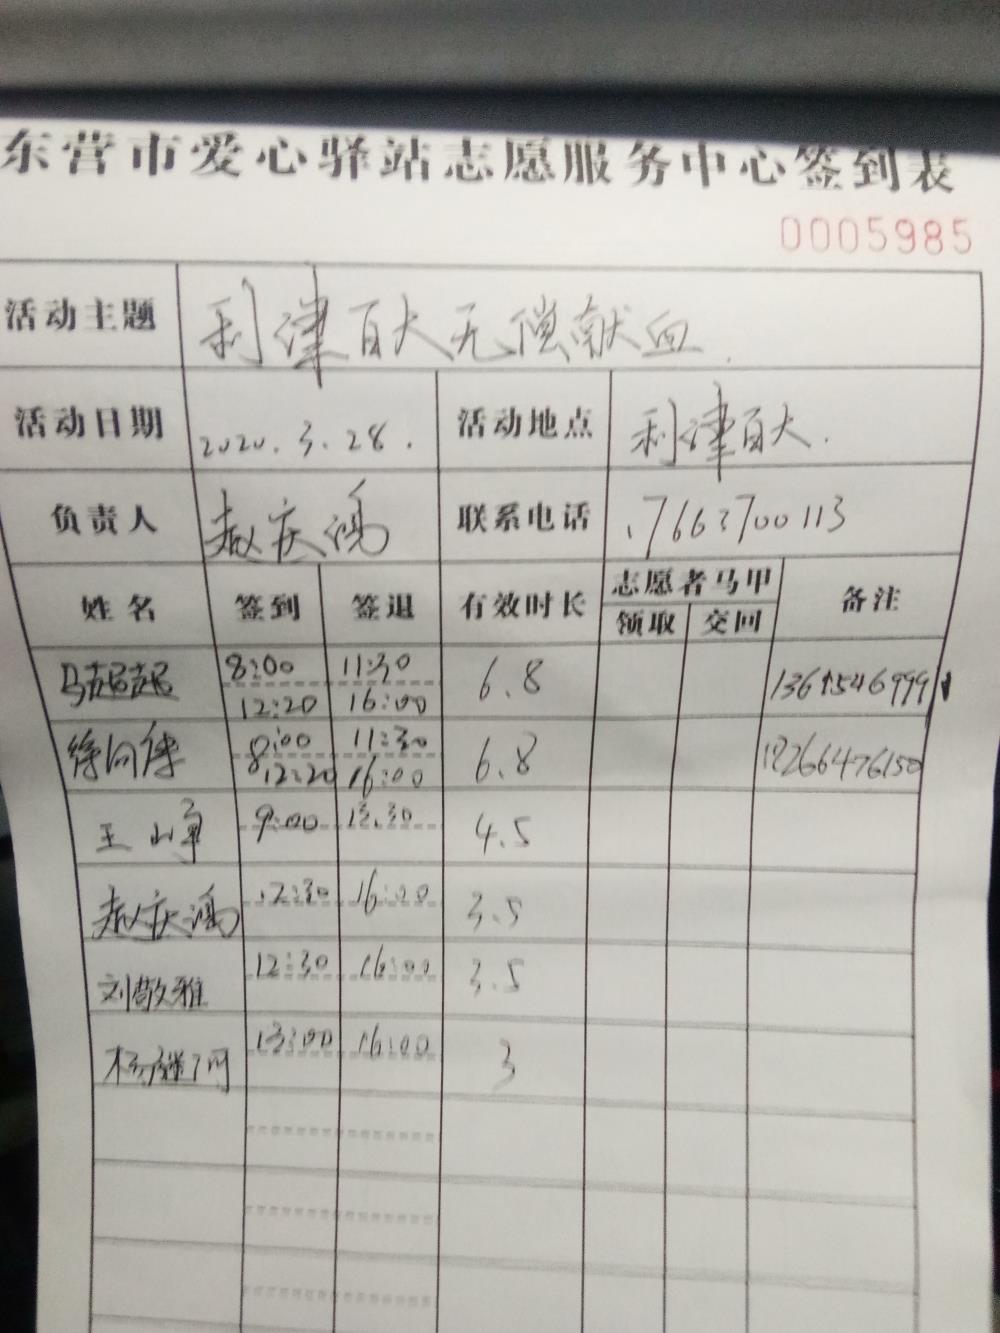 东营市爱心驿站志愿服务中心签到表
0005985
活动主题 利津百大无偿献血.
活动日期 2020.3.28. 活动地点 利津百大.
负责人 赵庆鸿 联系电话 17663700113
姓名 签到 签退 有效时长 志愿者马甲 备注
领取 交回
马起起 8:00 11:30 6.8
12:20 16:00
徐向 8:00 11:30 6.8 18266476150
12:20 16:00
王 9:00 13.30 4.5
赵庆鸿 12:30 16:00 3.5
刘敬雅 12:30 16:00 3.5
杨 13:00 16:00 3